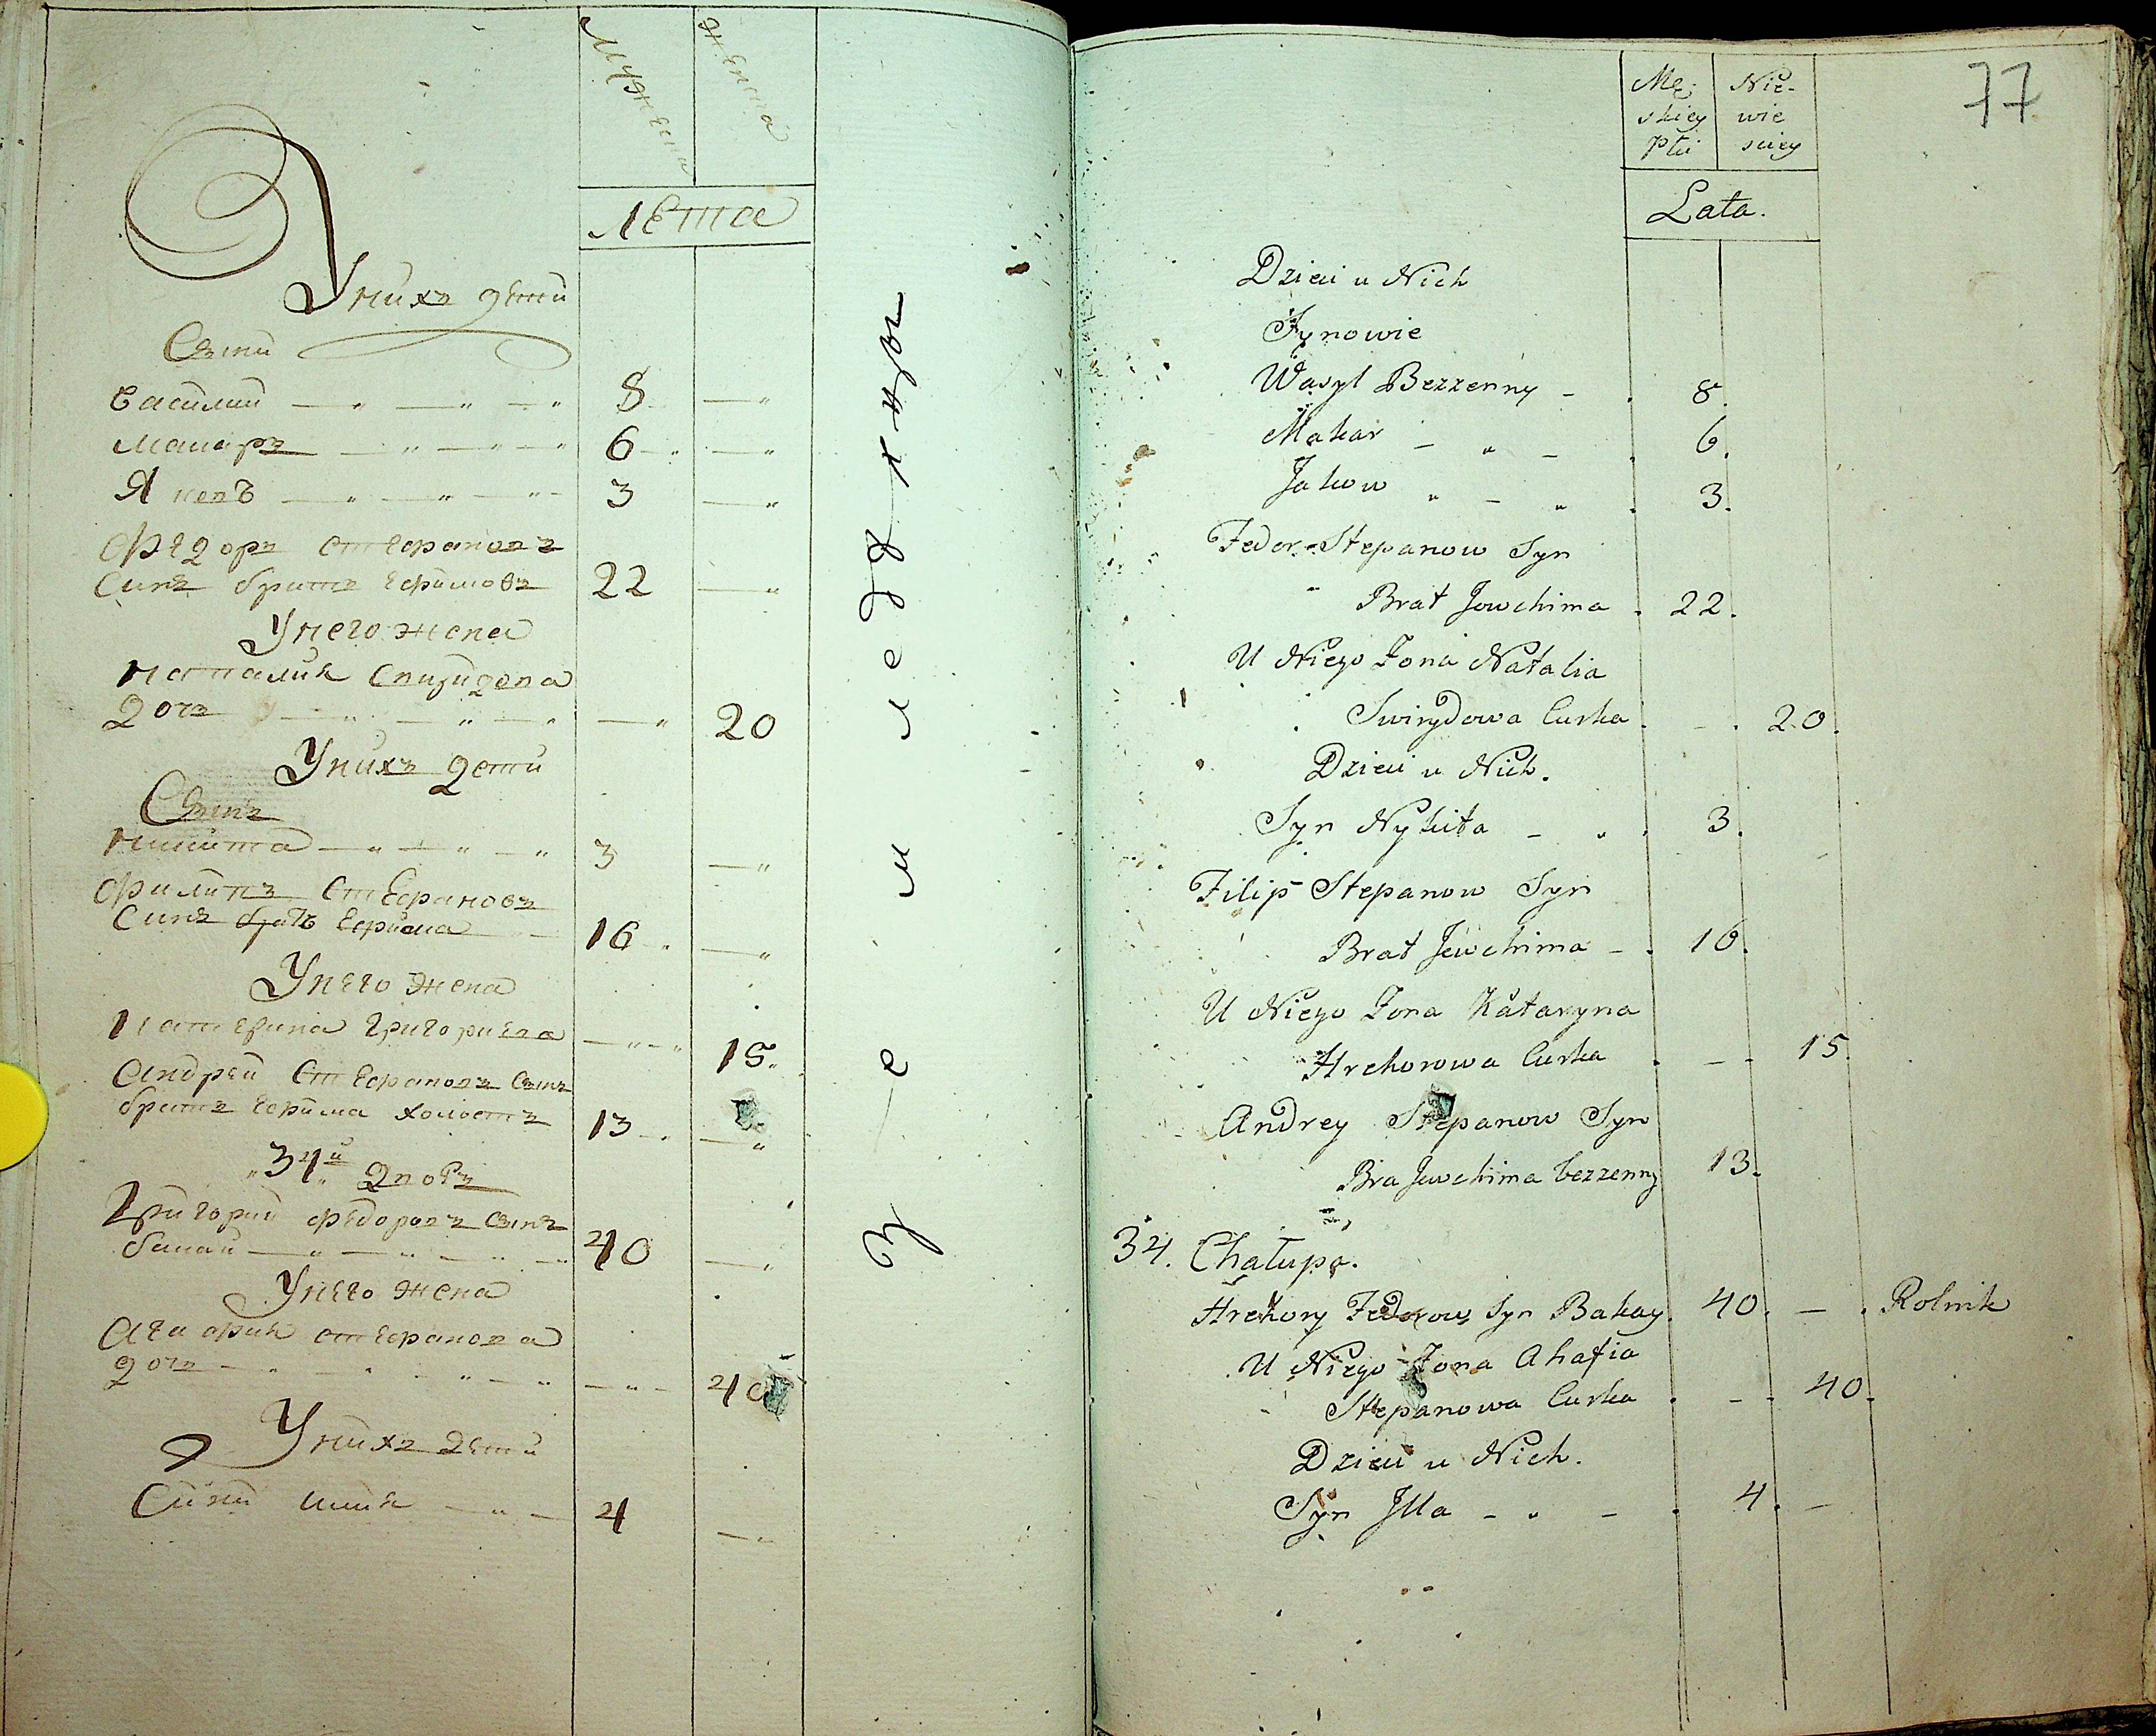 Мужеска
женска
Лета
У них дети
Сыни
Василий 8
Макаръ 6
Яковъ 3
Федоръ Стефановъ
Синъ братъ Ефимовъ 22
У него жена
Наталия Спиридова
дочь 20
У нихъ дети
Сынъ
Никита 3
Филипъ Стефановъ
Синъ братъ Ефима 16
У него жена
Катерина Григориева 15
Андрей Стефановъ Сынъ
братъ Ефима холостъ 13
34й Дворъ
Григорий Федоровъ Сынъ
Бакай 40
У него жена
Агафия Стефанова
дочь 40
У нихъ дети
Сини Илия 4
Земледельцы
77
Mę
skiey
Płci
Nie-
wie
sciey
Lata.
Dzieci u Nich
Synowie
Wasyl Bezzenny 8
Makar 6.
Jakow 3.
Fedor Stepanow Syn
Brat Jowchima 22.
U Niego Zona Natalia
Swirydowa Curka 20.
Dzieci u Nich.
Syn Nykita 3.
Filip Stepanow Syn
Brat Jewchima 16.
U Niego Zona Kataryna
Hrehorowa Curka 15.
Andrey Stepanow Syn
Bra Jewchima bezzenny 13.
34. Chałupa.
Hrehory Fedorow Syn Bakay. 40. Rolnik
U Niego Zona Ahafia
Stepanowa Curka 40.
Dzieci u Nich.
Syn Jlla 4.